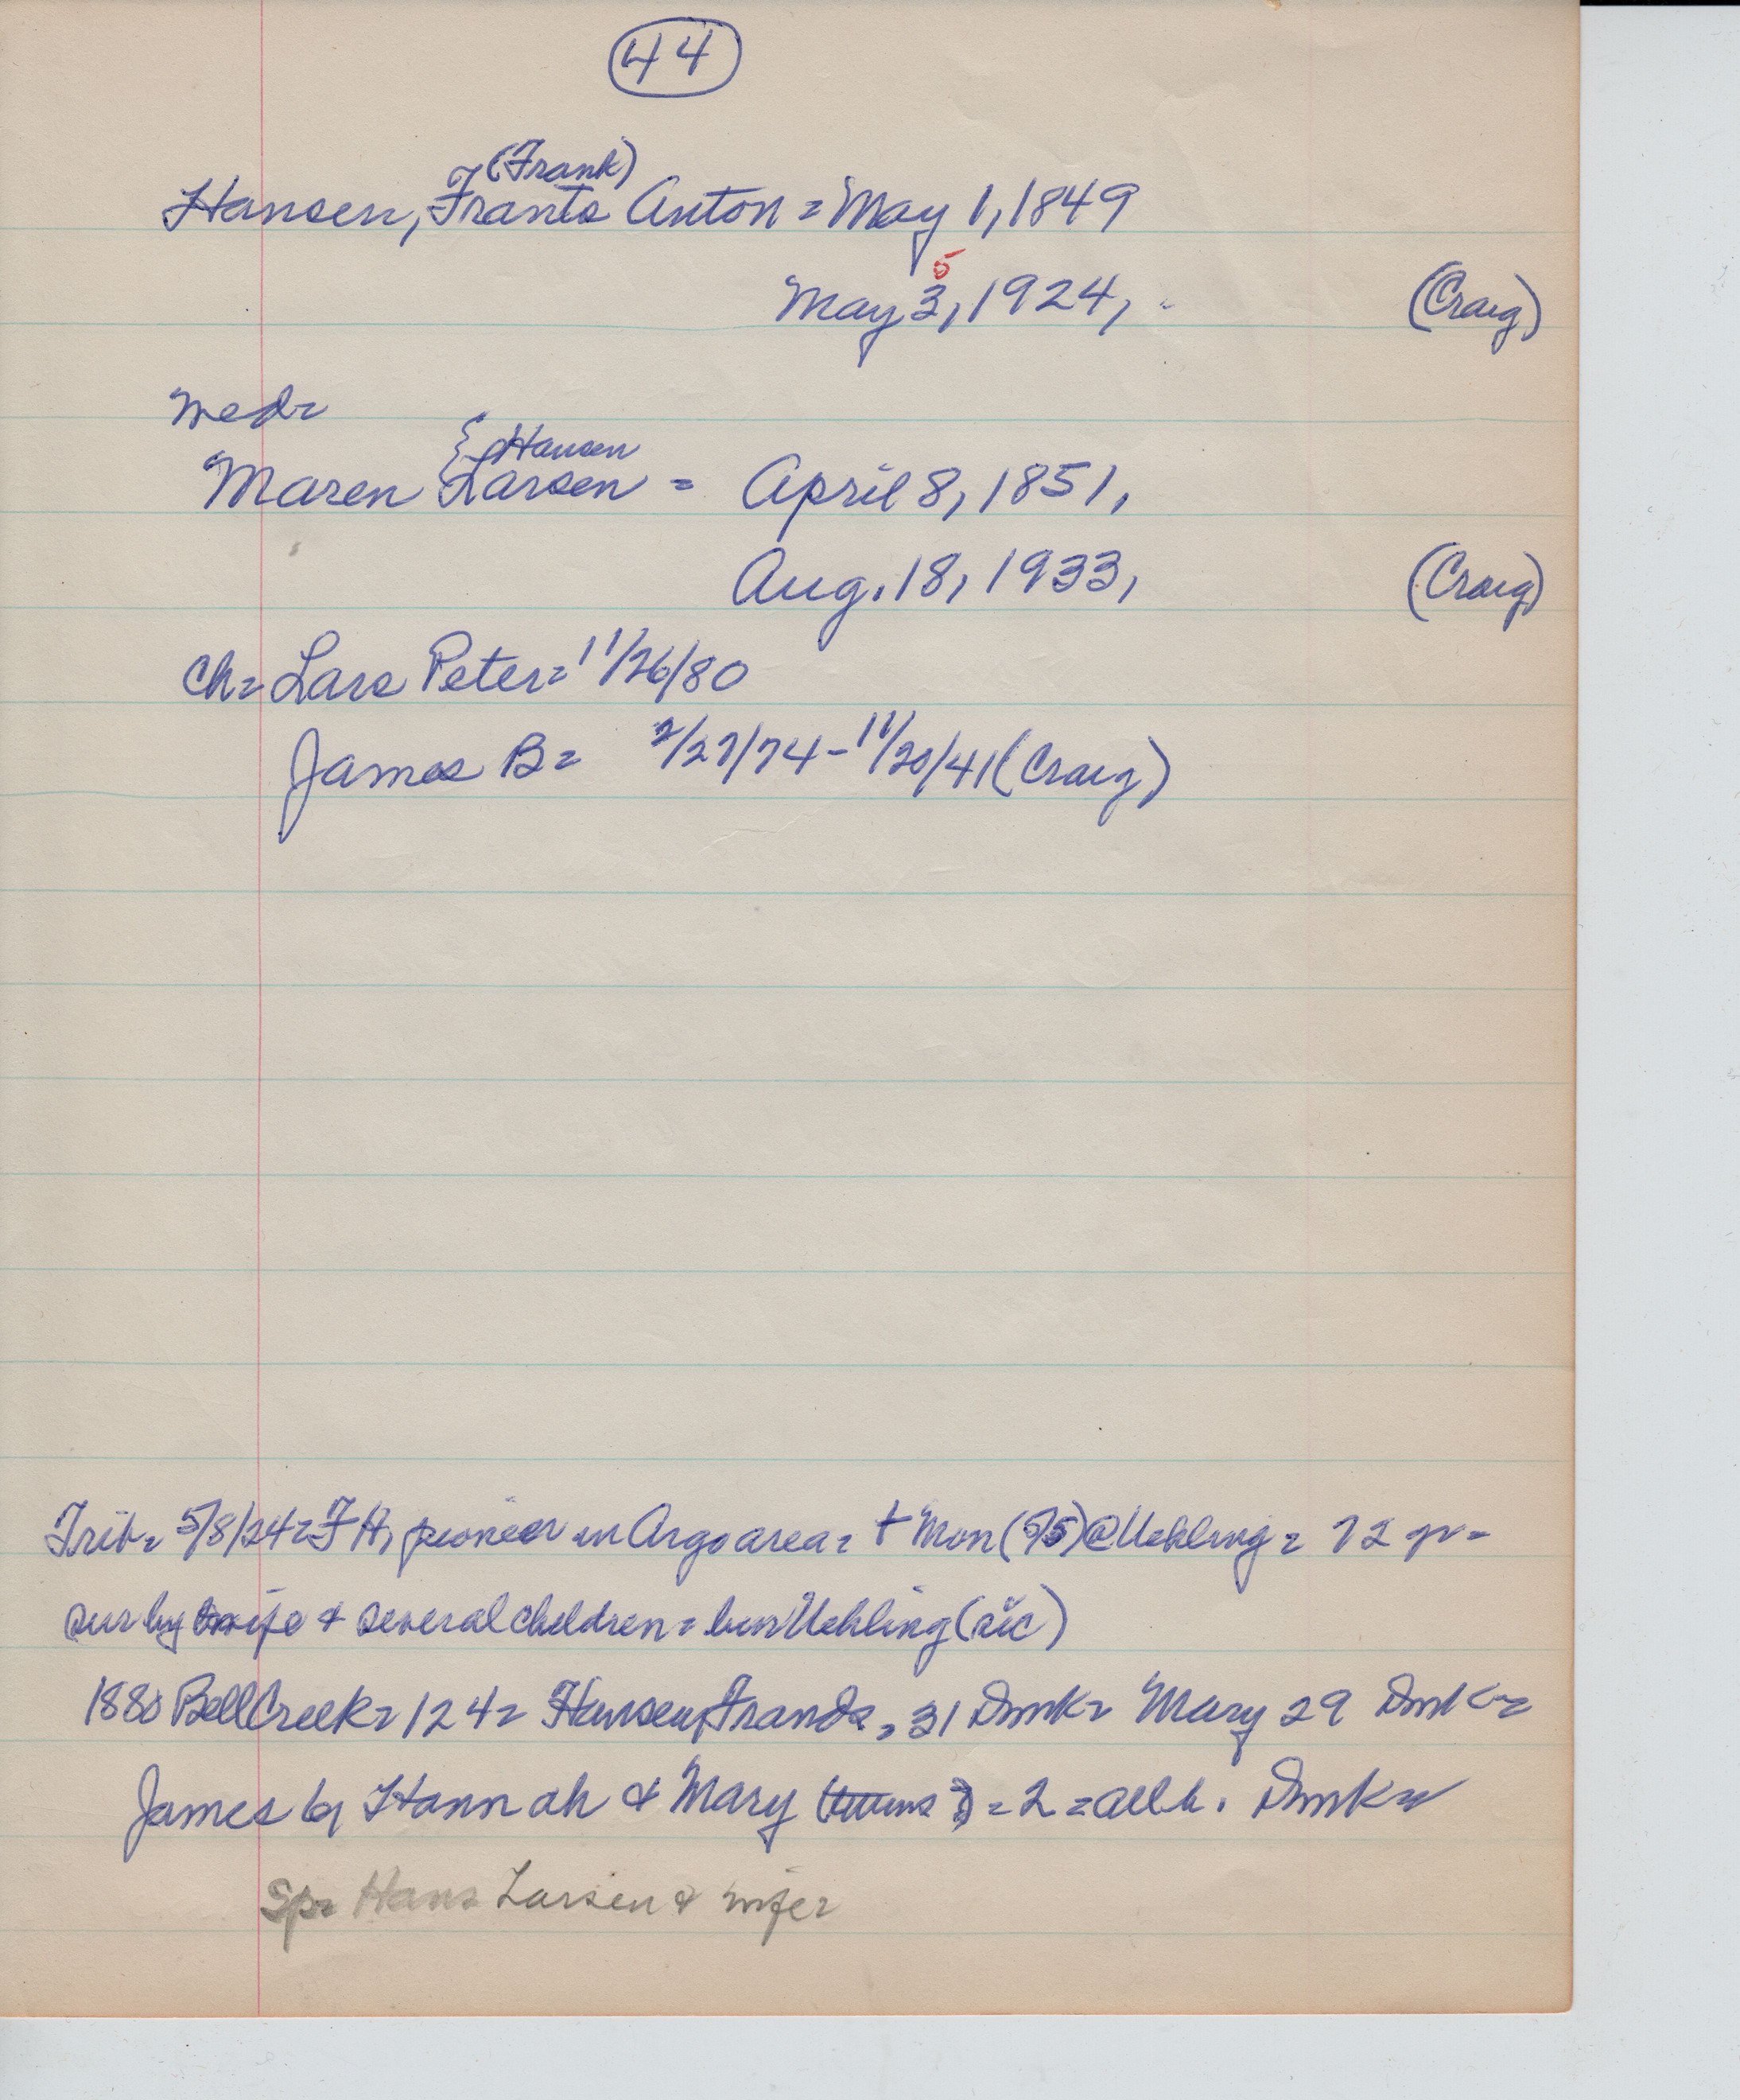 44
(Frank)
Hansen, Frants Anton = May 1, 1849
5
May 3, 1924, (Craig)
med=
{Hansen
Maren {Larsen = April 8, 1851,
Aug. 18, 1933, (Craig)
Ch= Lars Peter= 11/26/80
James B= 2/27/74-11/20/41 (Craig)
Trib= 5/8/24= F H, pioneer in Argo area= + Mon (5/5) @ Uehling= 72 yr=
sur by wife & several children= bur Uehling (sic)
1880 Bell Creek= 124= Hansen, Frands, 31 Dmk= Mary 29 Dmk=
James 6, Hannah & Mary = 2 = all b. Dmk=
Sp= Hans Larsen & wife=